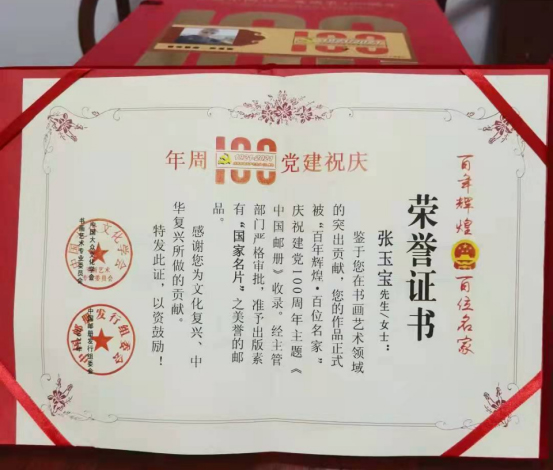 庆祝建党100周年
百年辉煌 百位名家
荣誉证书
张玉宝先生/女士:
鉴于您在书画艺术领域
的突出贡献,您的作品正式
被“百年辉煌·百位名家”
庆祝建党100周年主题《
中国邮册》收录。经主管
部门严格审批,准予出版素
有“国家名片”之美誉的邮
品。
感谢您为文化复兴、中
华复兴所做的贡献。
特发此证,以资鼓励!
中国大众文化学会
书画艺术专业委员会
中国邮册发行组委会
100